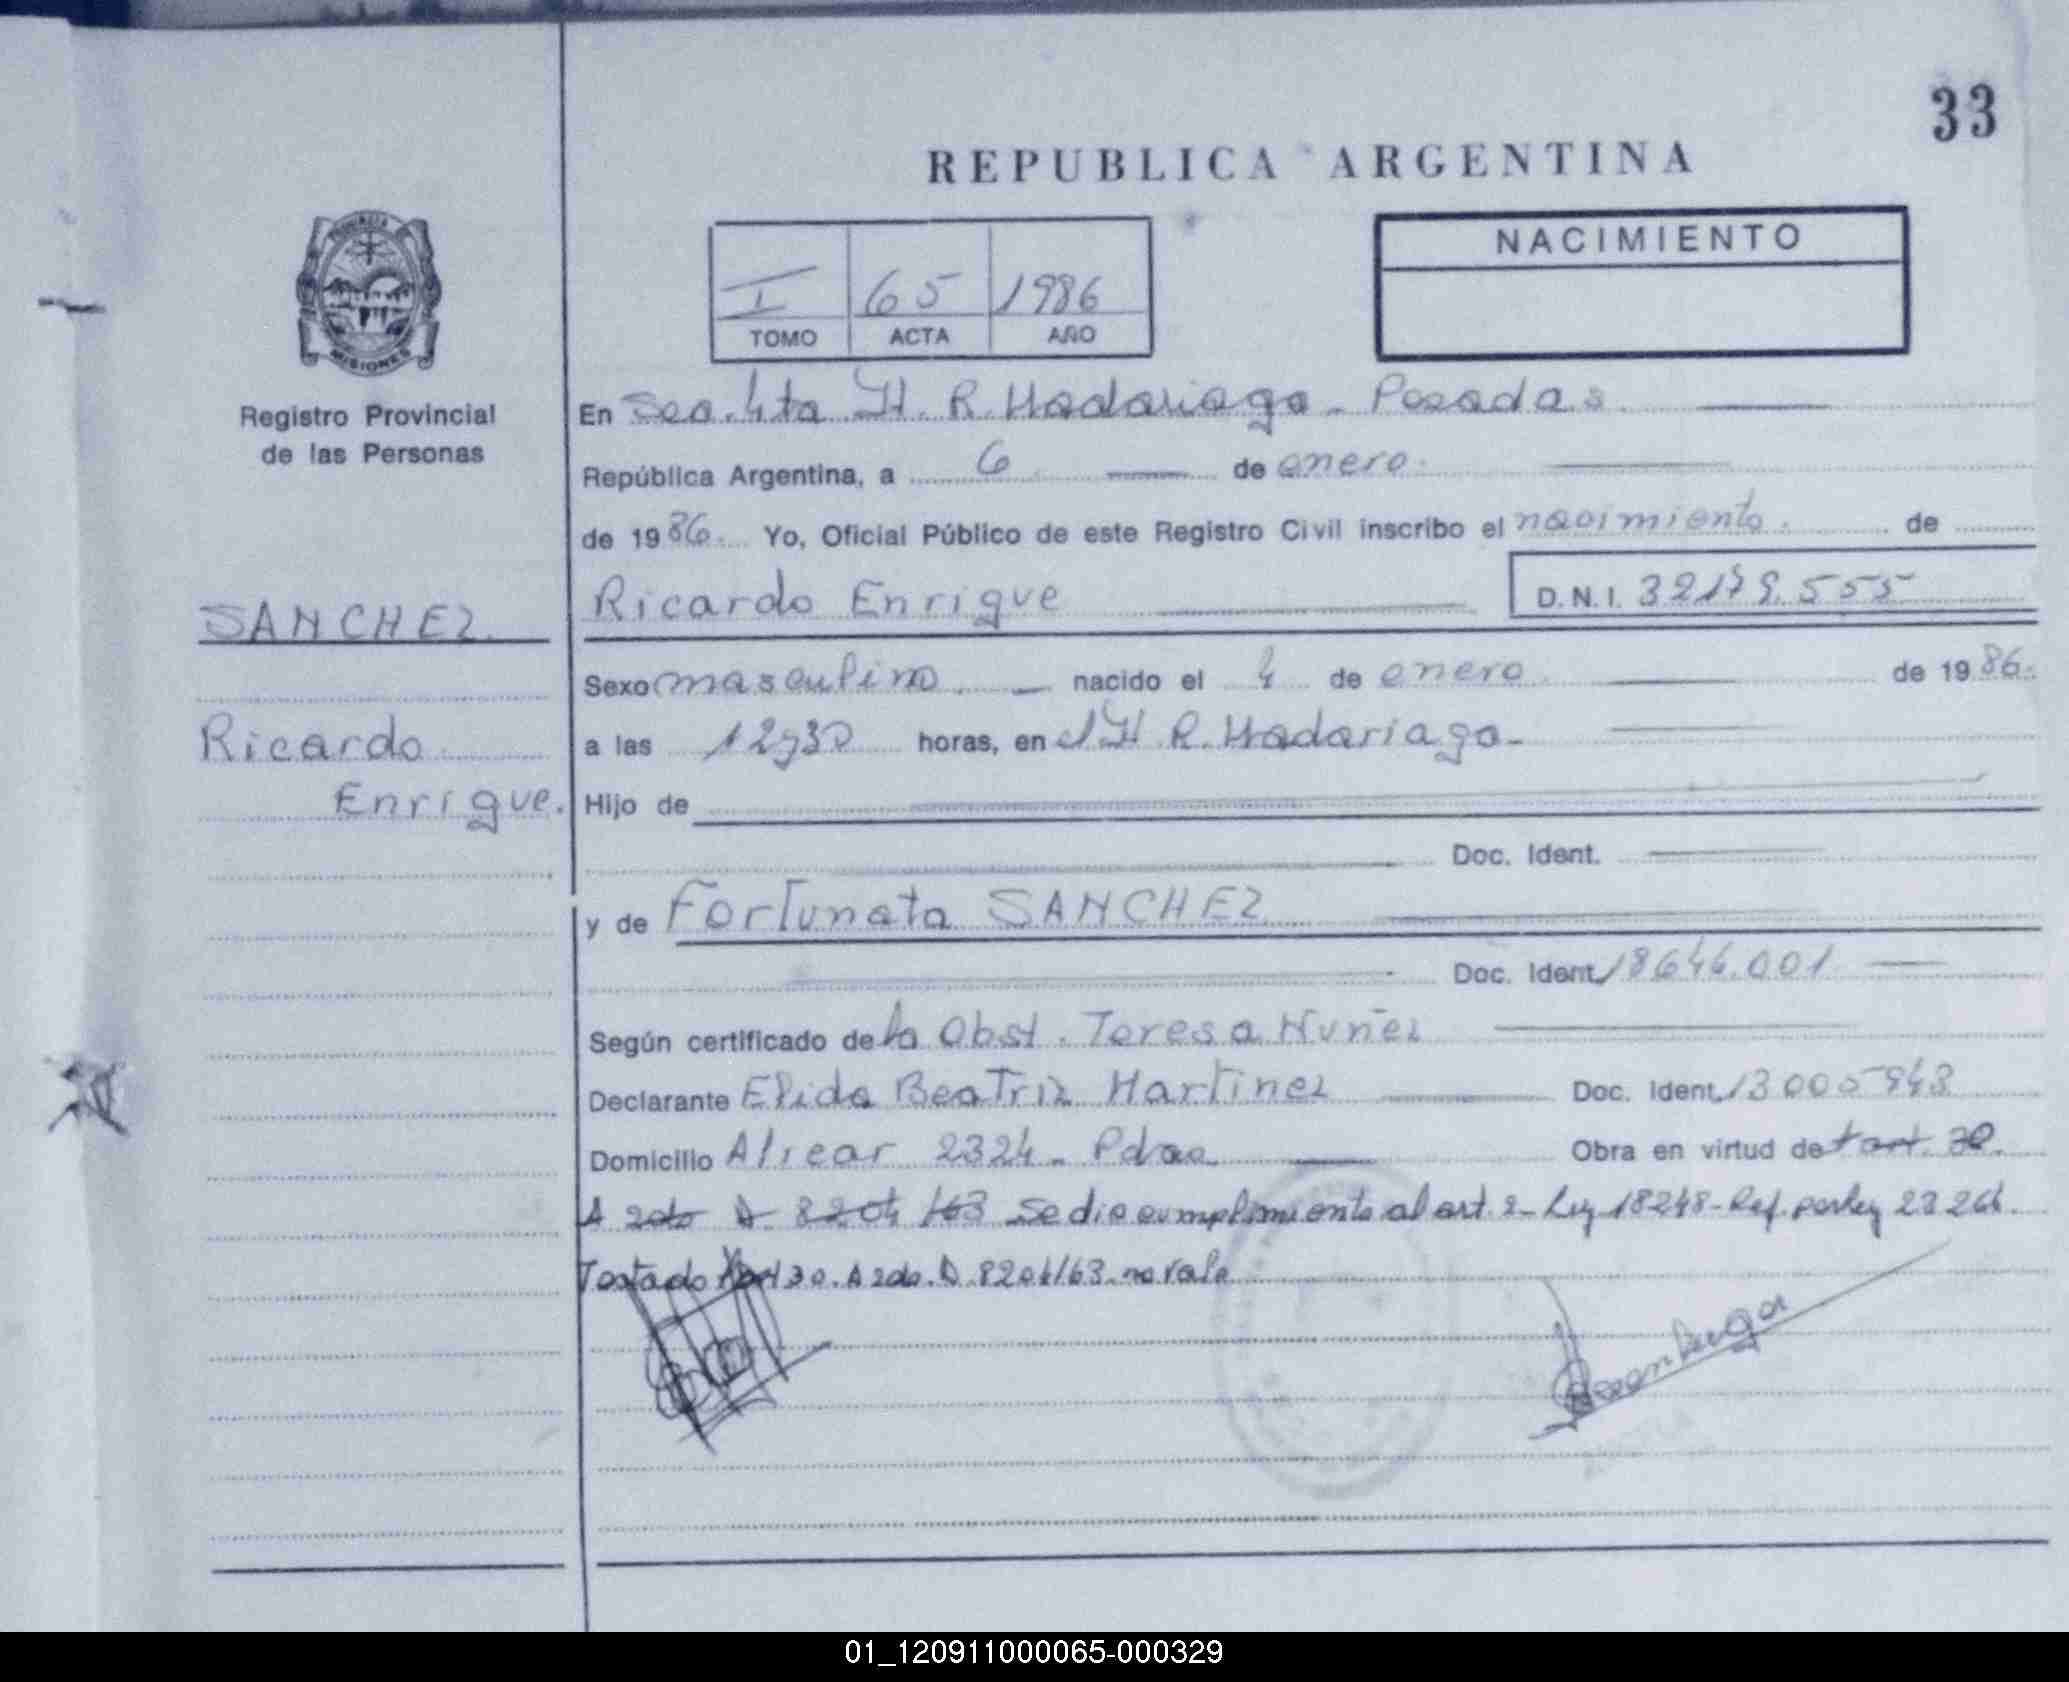 33
REPUBLICA ARGENTINA
NACIMIENTO
I 65 1986
TOMO ACTA AÑO
MISIONES
Registro Provincial
de las Personas
SANCHEZ
Ricardo
Enrique.
En Sec. 4ta H. R. Madariaga - Posadas
República Argentina, a 6 de enero
de 1986. Yo, Oficial Público de este Registro Civil inscribo el nacimiento de
Ricardo Enrique D.N.I. 32179.555
Sexo masculino nacido el 4 de enero de 1986.
a las 12y30 horas, en el H. R. Madariaga-
Hijo de
Doc. Ident.
y de Fortunata SANCHEZ
Doc. Ident. 18646.001
Según certificado de la Obst. Teresa Nuñez
Declarante Elida Beatriz Martinez Doc. Ident. 13005948
Domicilio Alvear 2324 - Pdas Obra en virtud de art. 30.
A 2do D 8204/63 Se dio cumplimiento al art. 2- Ley 18248-Ref. por Ley 23264.
Testado art 30. A 2do. D 8204/63. no vale
01_120911000065-000329